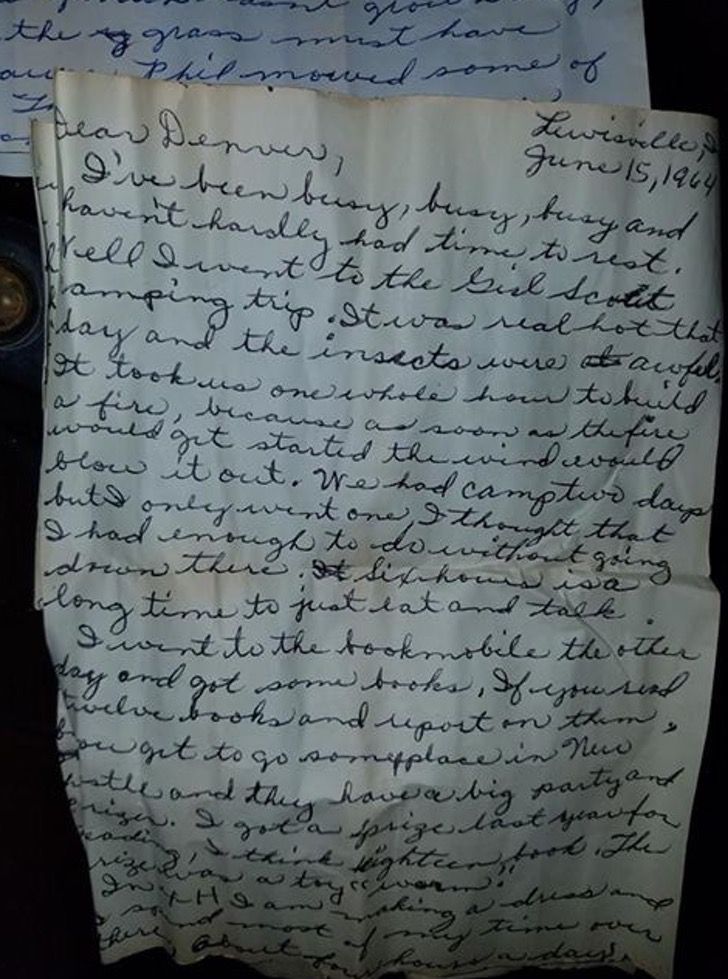 the grass must have
Phil mowed some of
Lewisville, I
Dear Denver,
June 15, 1964
I've been busy, busy, busy and
haven't hardly had time to rest.
Well I went to the Girl Scout
camping trip. It was real hot that
day and the insects were awful.
It took us one whole hour to build
a fire, because as soon as the fire
would get started the wind would
blow it out. We had camp two days
but I only went one, I thought that
I had enough to do without going
down there. Six hours is a
long time to just eat and talk.
I went to the bookmobile the other
day and got some books, If you read
twelve books and report on them,
you get to go someplace in New
astle and they have a big party and
prizes. I got a prize last year for
reading, I think eighteen book. The
prize was a toy "worm".
In 4H I am making a dress and
I spend most of my time over
there, about four hours a day.